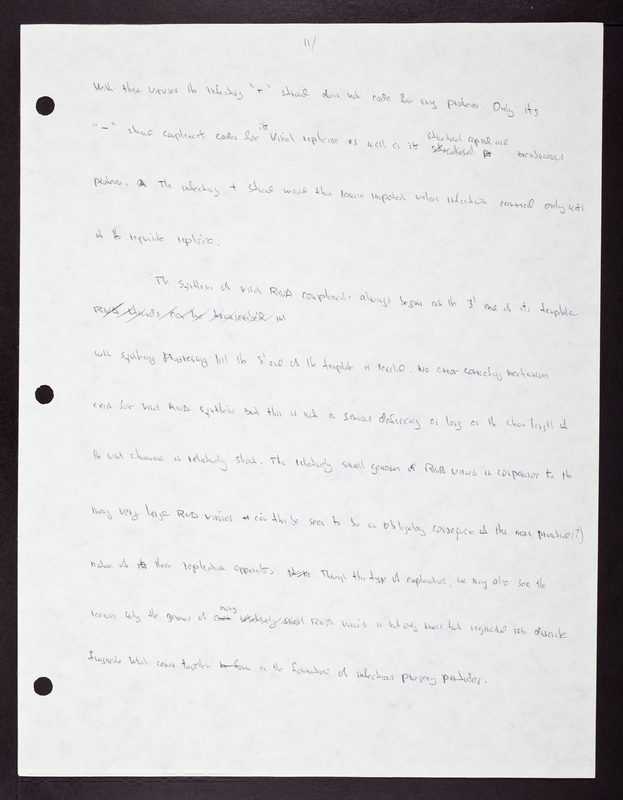 11/
With these viruses the infecting "+" strand does not code for any proteins. Only its
"–" strand complement codes for its viral replicase as well as its structural capsid and membranous
protein. The infecting + strand must thus remain impotent unless infection occurred only with
the requisite replicase.
The synthesis of viral RNA complements always begins at the 3' end of its template
RNA strands can be transcribed
with synthesis till the 5' end of the template is reached. No error correcting mechanism
exist for viral RNA synthesis but this is not a serious deficiency as long as the chain length of
the viral chromosome is relatively short. The relatively small genomes of RNA viruses in comparison to the
many very large DNA viruses can thus be seen to be an obligatory consequence of the more primitive(?)
nature of their replicative apparatus. Through this type of explanation, we may also see the
reason why the genome of many relatively small RNA viruses is not only small but segmented into discrete
fragments which come together in the formation of infectious progeny particles.